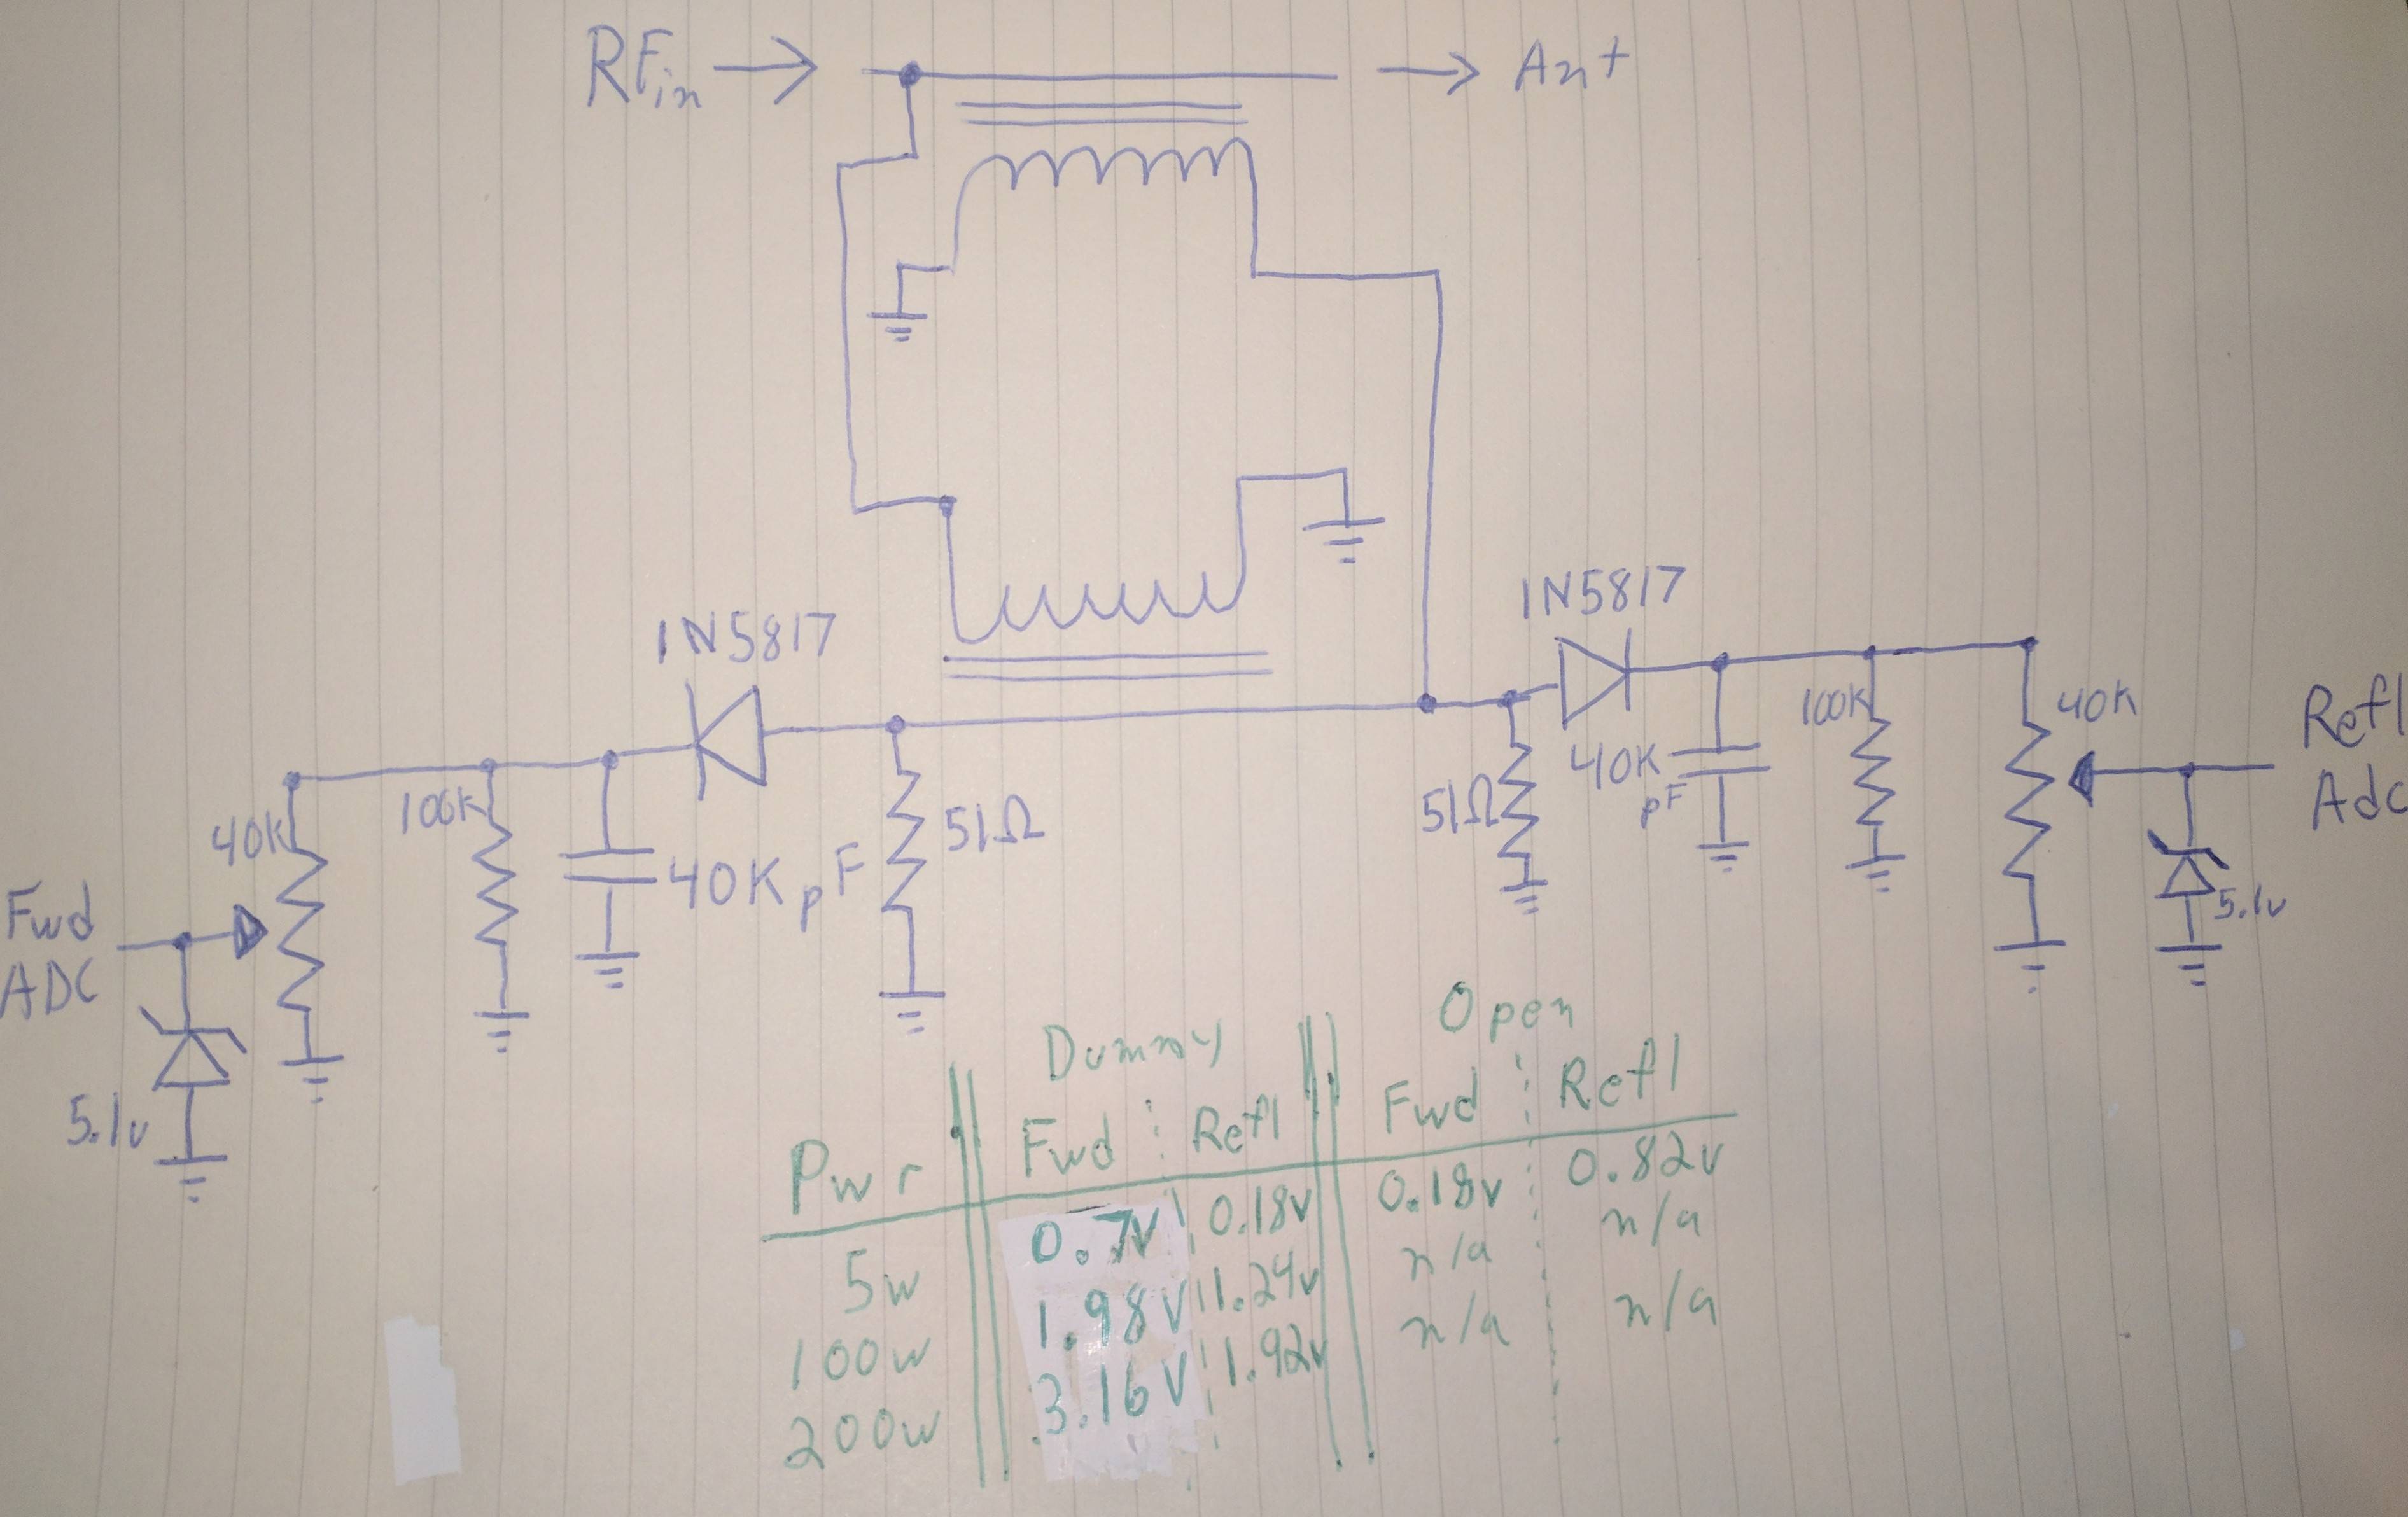 RFin → → Ant
1N5817
1N5817
40K
100K
40KpF
51Ω
51Ω
40K
pF
100K
40K
Refl
Adc
5.1v
Fwd
ADC
5.1v
Dummy Open
Pwr Fwd Refl Fwd Refl
5w 0.7V 0.18V 0.18v 0.82v
100w 1.98V 1.24v n/a n/a
200w 3.16V 1.92v n/a n/a